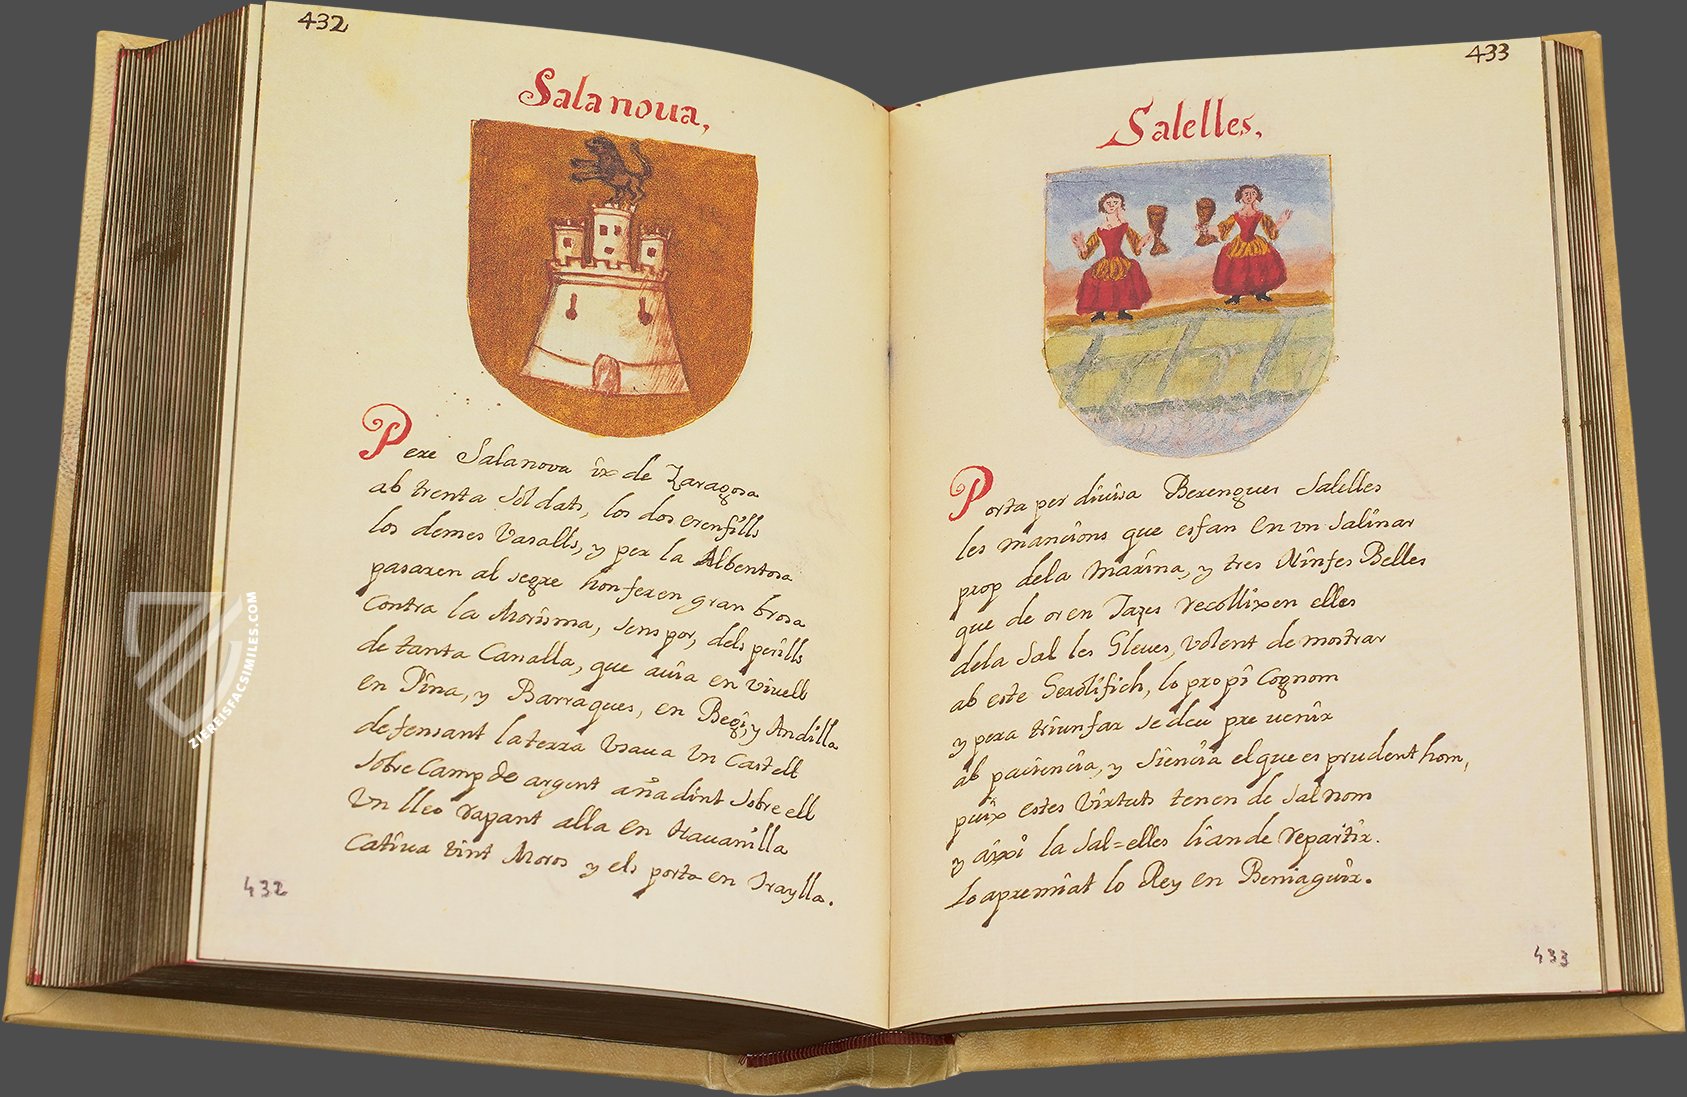 432
Salanoua,
Pere Salanova ix de Zaragosa
ab trenta Soldats, los dos eren fills
los demes Vasalls, y per la Albentosa
pasaren al segre hon feren gran brosa
Contra la Morisma, sens por, dels perills
de tanta Canalla, que auia en viuells
en Pina, y Barraques, en Begi, y Andilla
defensant la terra Vsaua Vn Castell
sobre Camp de argent añadint sobre ell
Vn lleo rapant alla en
Catiua vint Moros y els porta en Traylla.
432
433
Salelles,
Porta per diuisa Berenguer Salelles
les mancions que esfan en vn salinar
prop dela Marina, y tres Ninfes Belles
que de or en Tazes recollixen elles
dela sal les Gleues, volent demostrar
ab este Gerolifich, lo propi Cognom
y pera triunfar se deu preuenir
ab paciencia, y siencia el que es prudent hom,
puix estes Virtuts tenen de sal nom
y aixi la sal=elles lian de repartir.
Lo apremiat lo Rey en Beniaguir.
433
ZIEREISFACSIMILES.COM